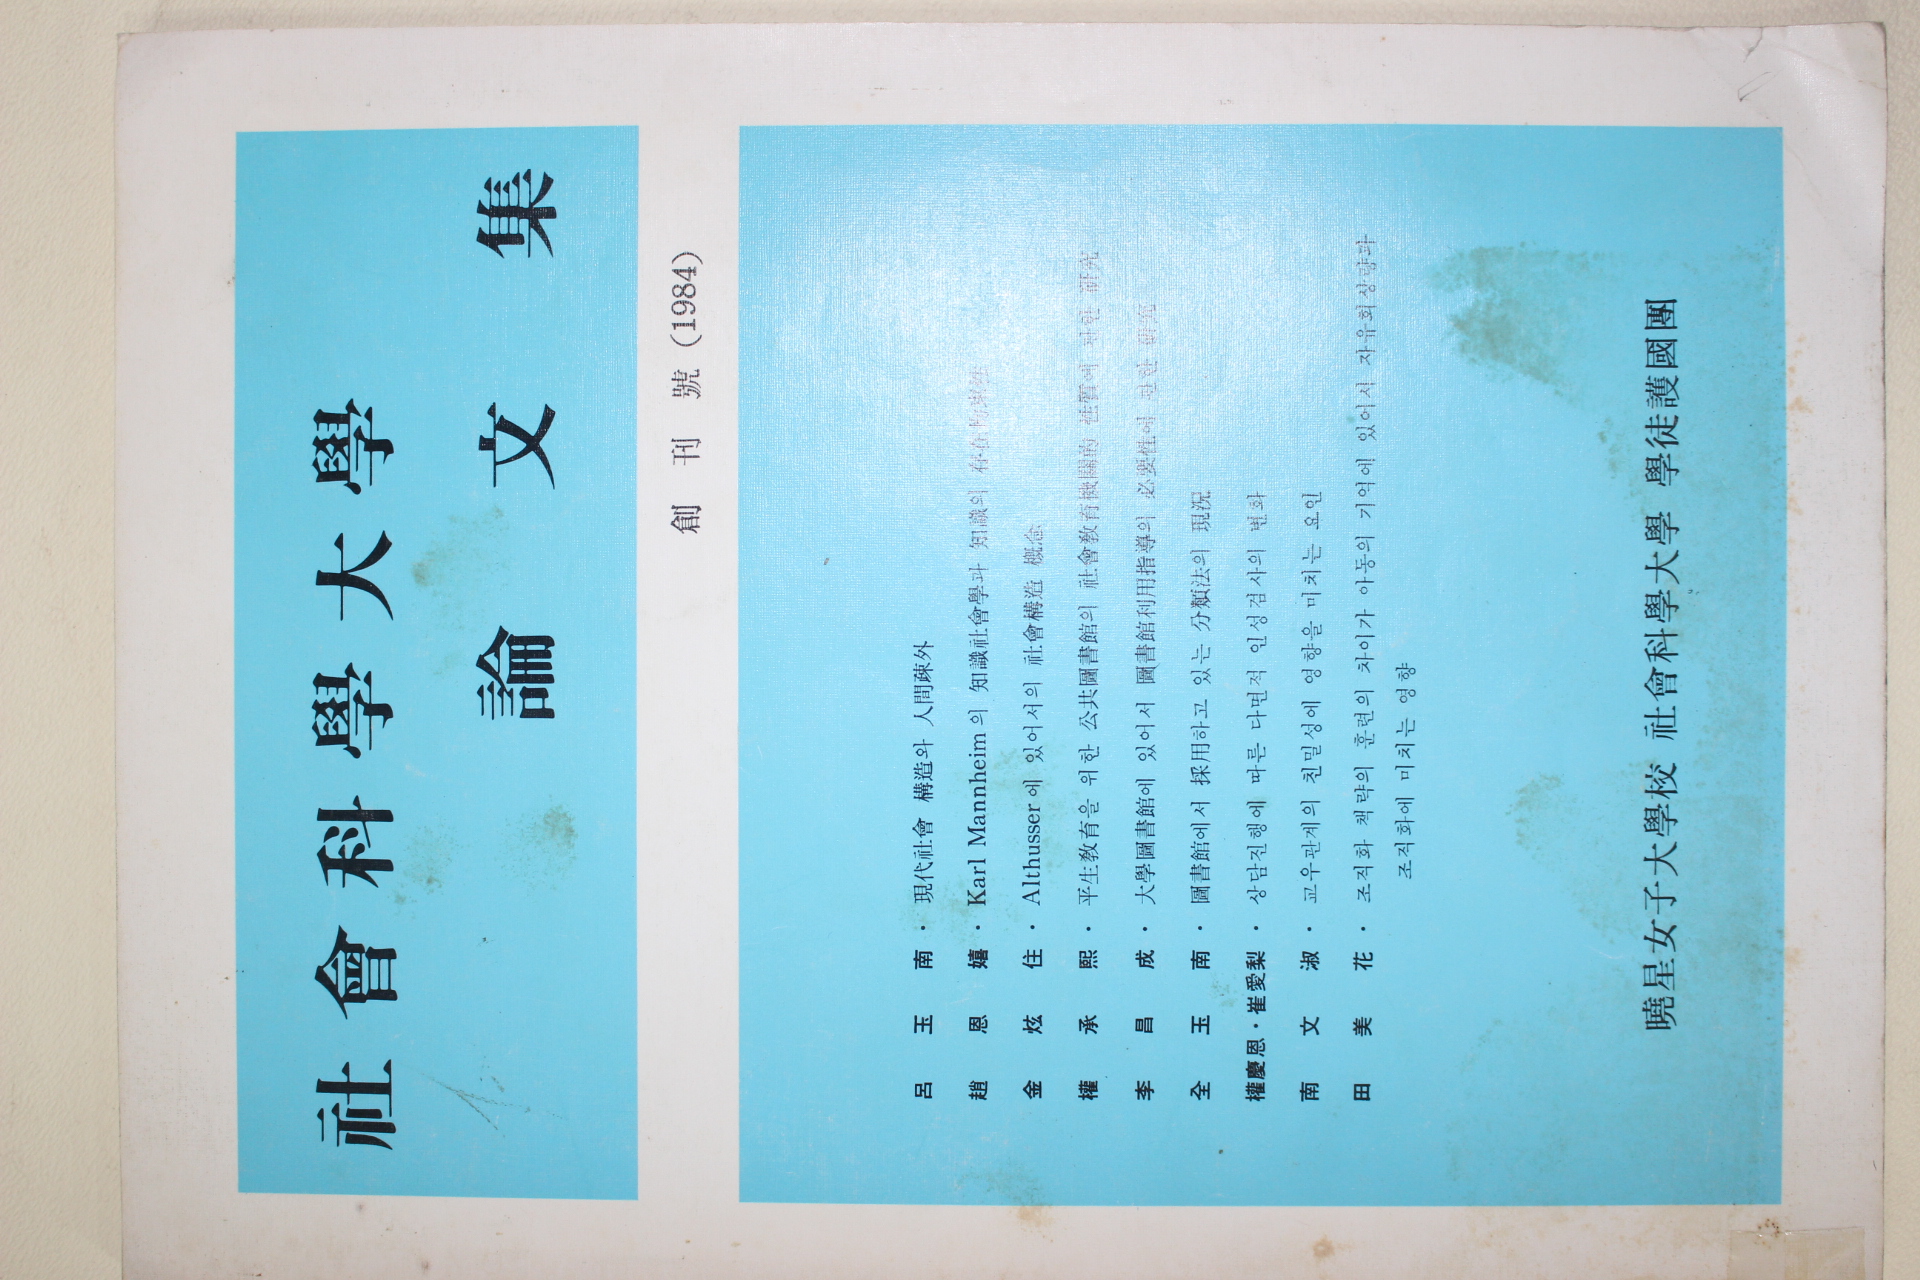 社會科學大學
論文集
創刊號 (1984)
呂玉南 · 現代社會 構造와 人間疎外
趙恩嬉 · Karl Mannheim의 知識社會學과 知識의
金炫住 · Althusser에 있어서의 社會構造 槪念
權承熙 · 平生敎育을 위한 公共圖書館의 社會敎育機關的 性質에 관한 硏究
李昌成 · 大學圖書館에 있어서 圖書館利用指導의 必要性에 관한 硏究
全玉南 · 圖書館에서 採用하고 있는 分類法의 現況
權慶恩 · 崔愛梨 · 상담진행에 따른 다면적 인성검사의 변화
南文淑 · 교우관계의 친밀성에 영향을 미치는 요인
田美花 · 조직화 책략의 훈련의 차이가 아동의 기억에 있어서 자유회상량과
조직화에 미치는 영향
曉星女子大學校 社會科學大學 學徒護國團